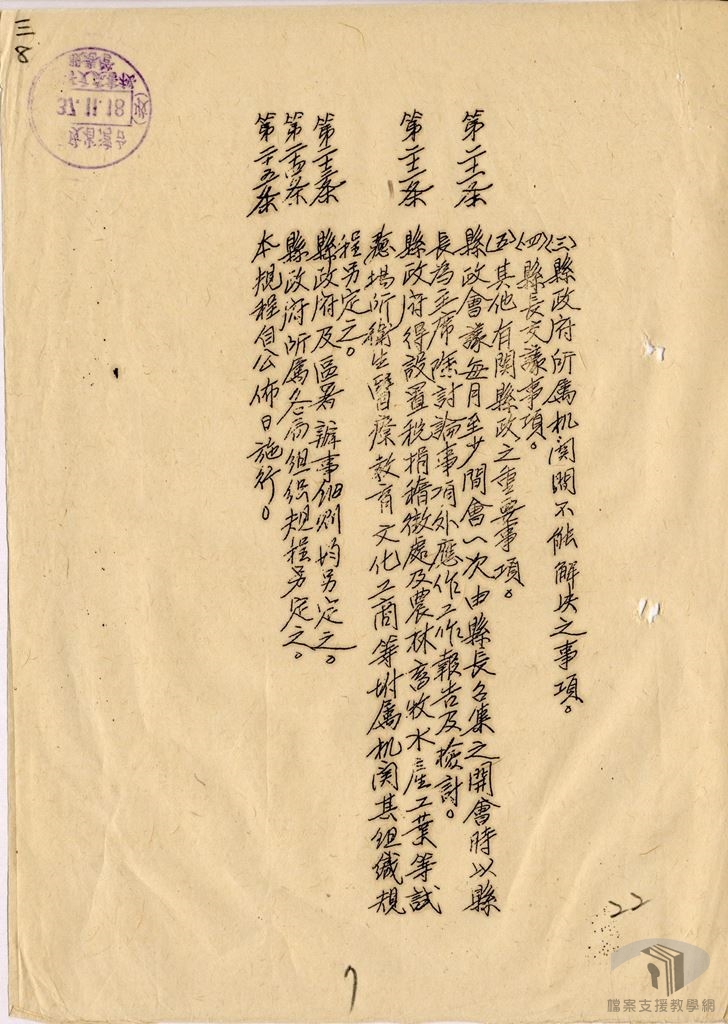 (三)縣政府所属机関間不能解决之事項。
(四)縣長交議事項。
(五)其他有関縣政之重要事項。
第二十一条 縣政會議每月至少開會一次由縣長召集之開會時以縣
長為主席除討論事項外應作工作報告及檢討。
第二十二条 縣政府得設置税捐稽徵處及農林畜牧水產工業等試
驗場所衛生醫療教育文化工商等附属机関其组織規
程另定之。
第二十三条 縣政府及區署辦事细则均另定之。
第二十四条 縣政府所属各局组织規程另定之。
第二十五条 本規程自公佈日施行。
三8
37.11.18
22
7
檔案支援教學網